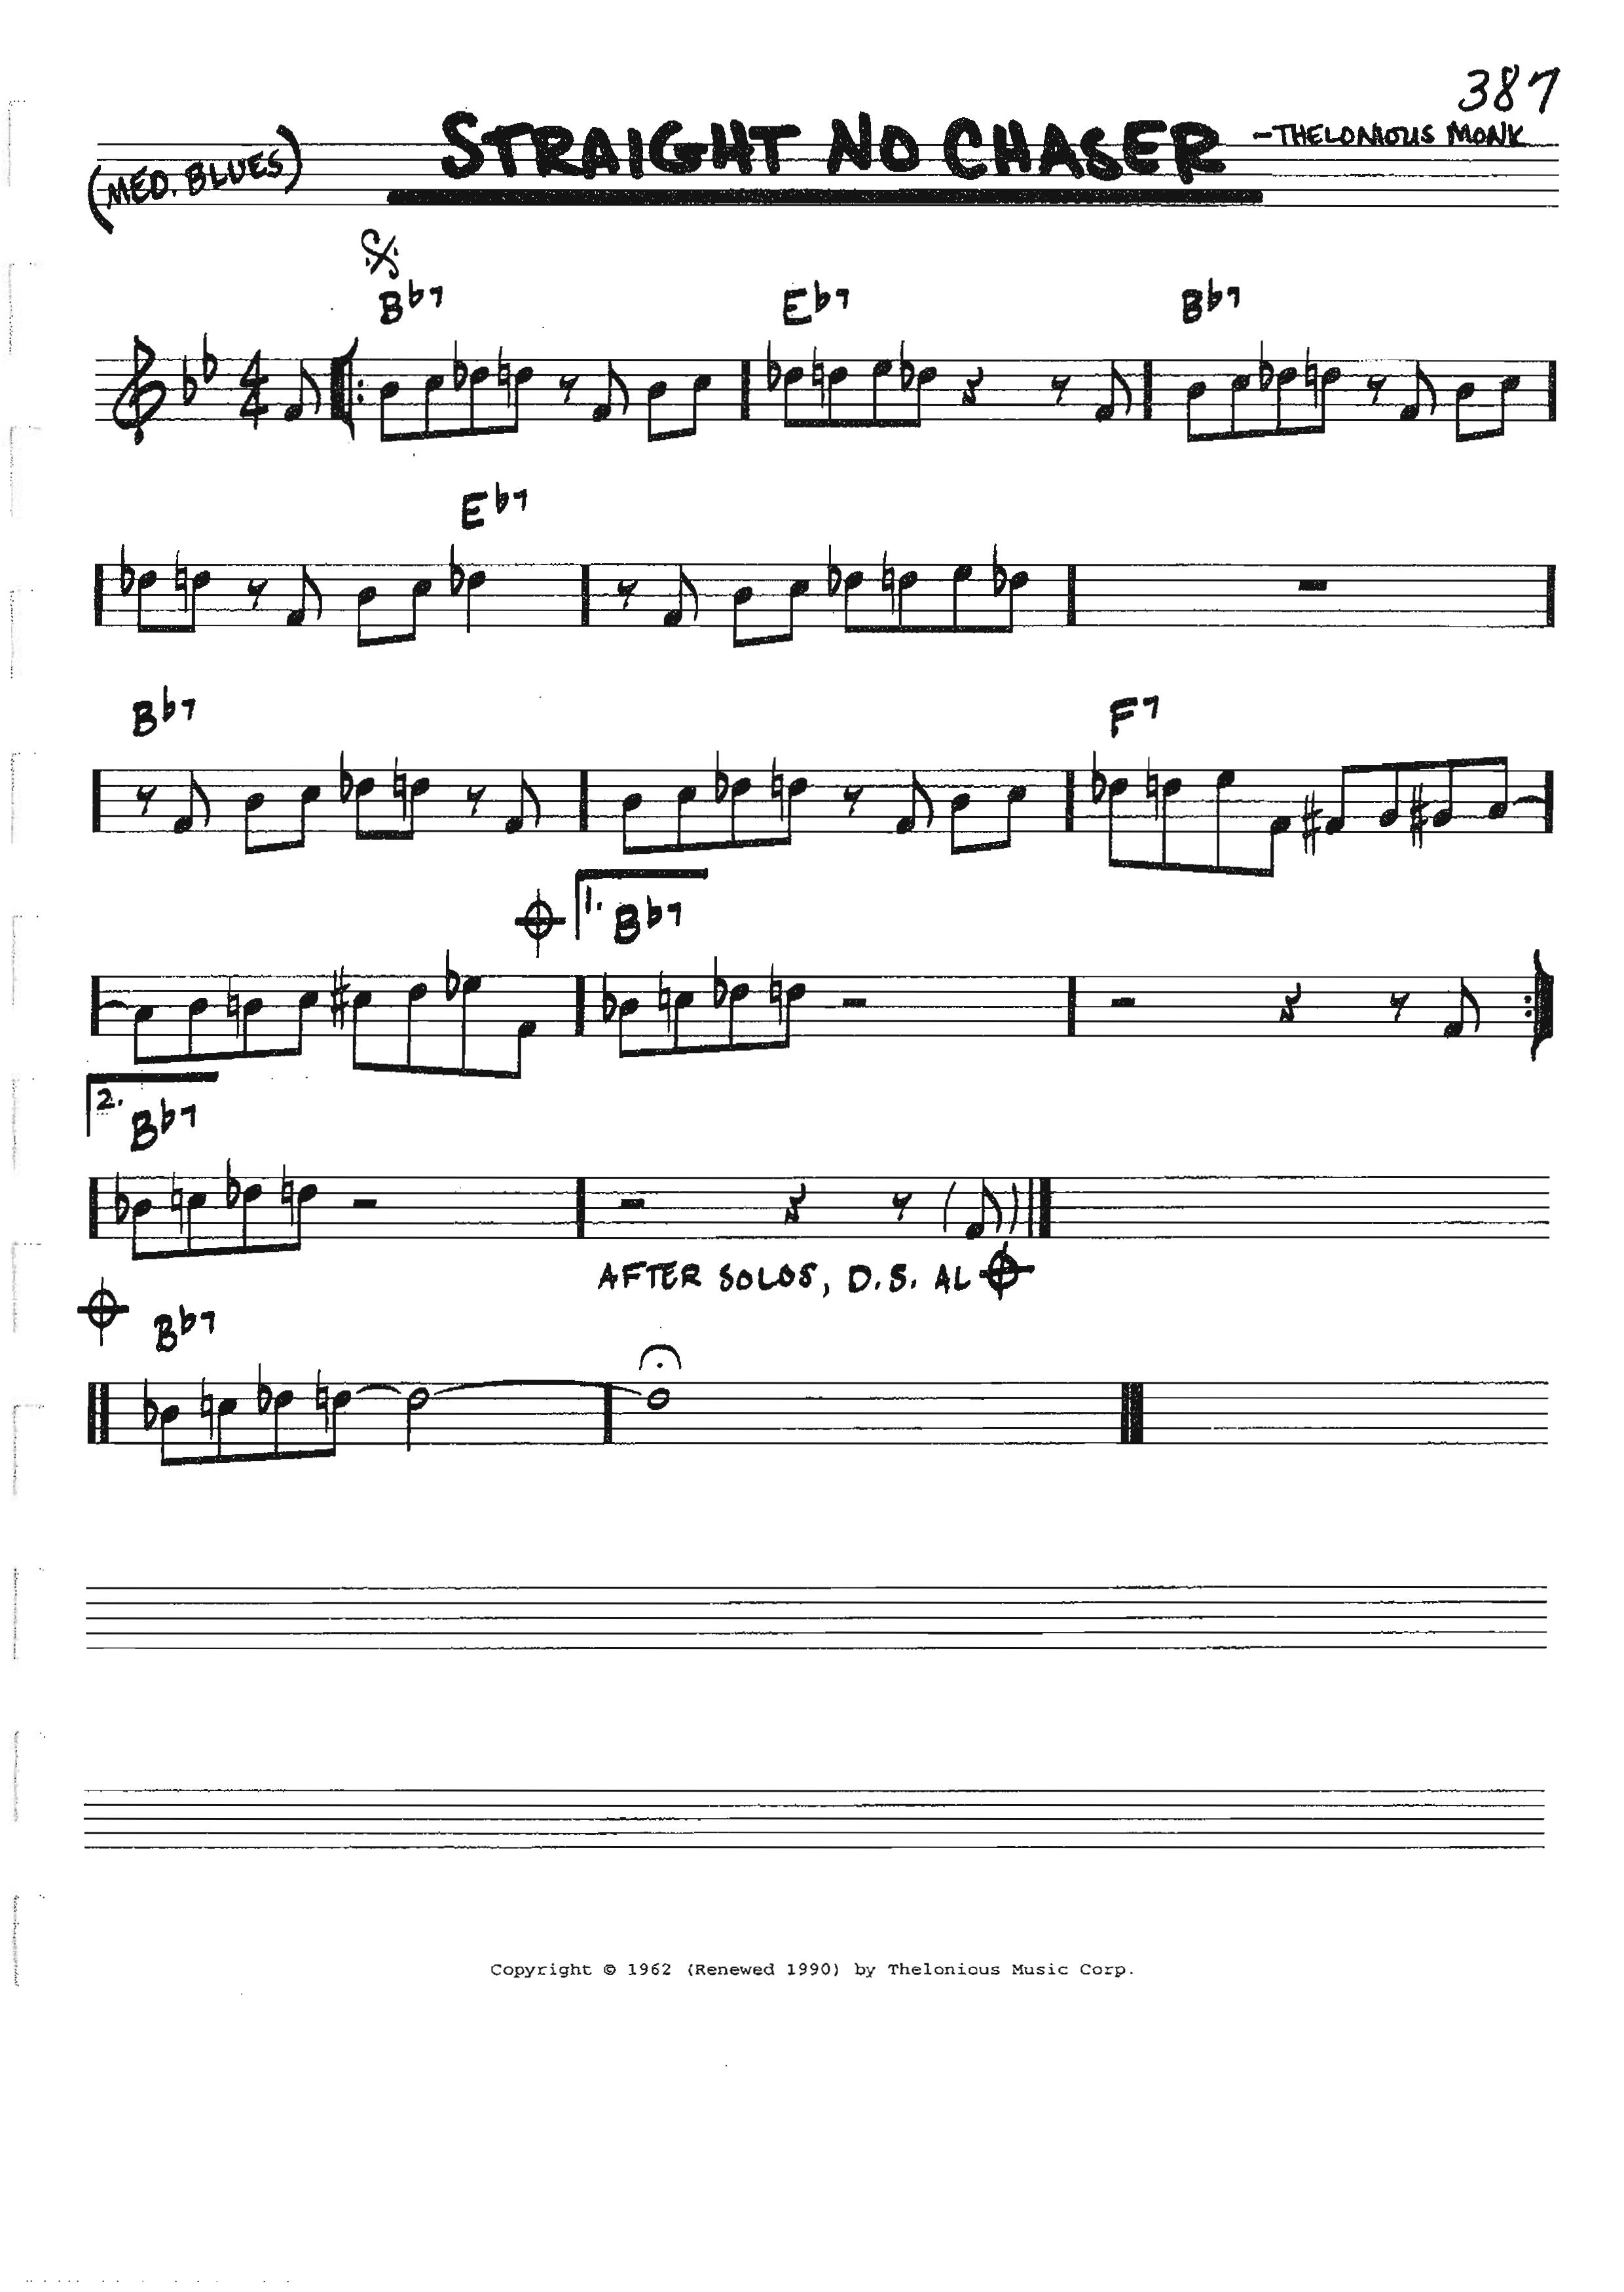 387
STRAIGHT NO CHASER
-THELONIOUS MONK
(MED. BLUES)
B♭7 E♭7 B♭7
4/4
E♭7
B♭7 F7
1. B♭7
2. B♭7
AFTER SOLOS, D.S. AL
B♭7
Copyright © 1962 (Renewed 1990) by Thelonious Music Corp.